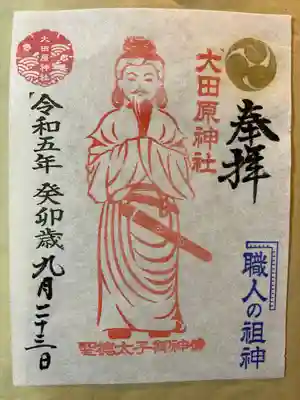 奉拝
大田原神社
職人の祖神
大田原神社
令和五年 癸卯歳 九月二十三日
聖徳太子御神像